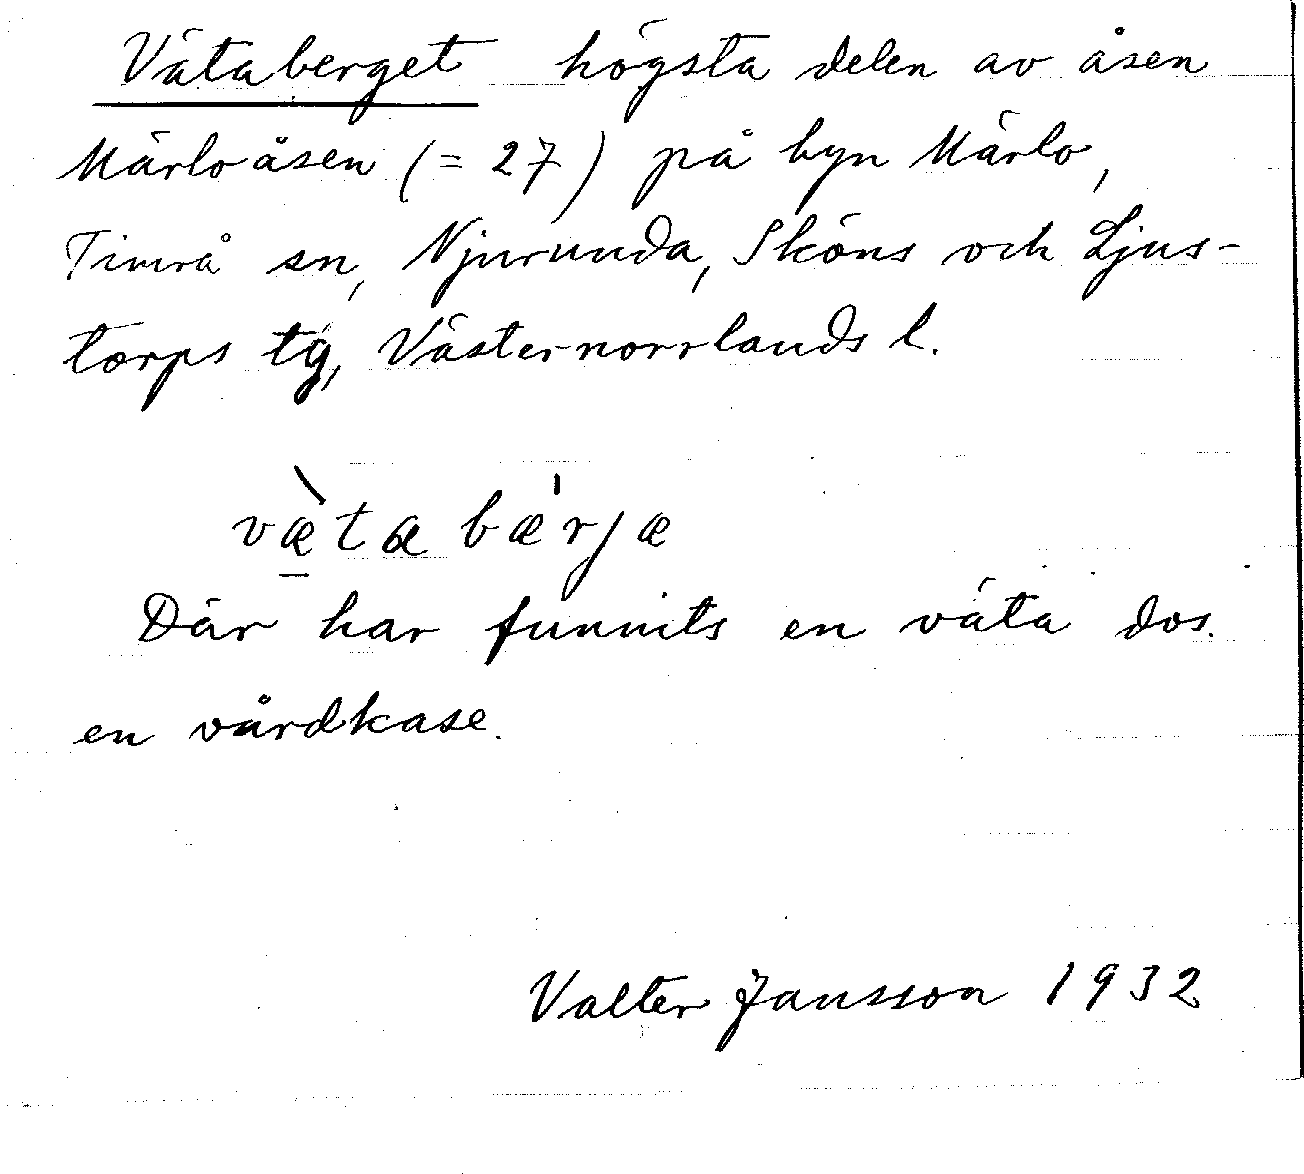 Vätaberget högsta delen av åsen
Märloåsen (= 27) på byn Märlo,
Timrå sn, Njurunda, Sköns och Ljus-
torps tg, Västernorrlands l.
væ̀ta bæ'rjæ
Där har funnits en väta dvs.
en vårdkase.
Valter Jansson 1932